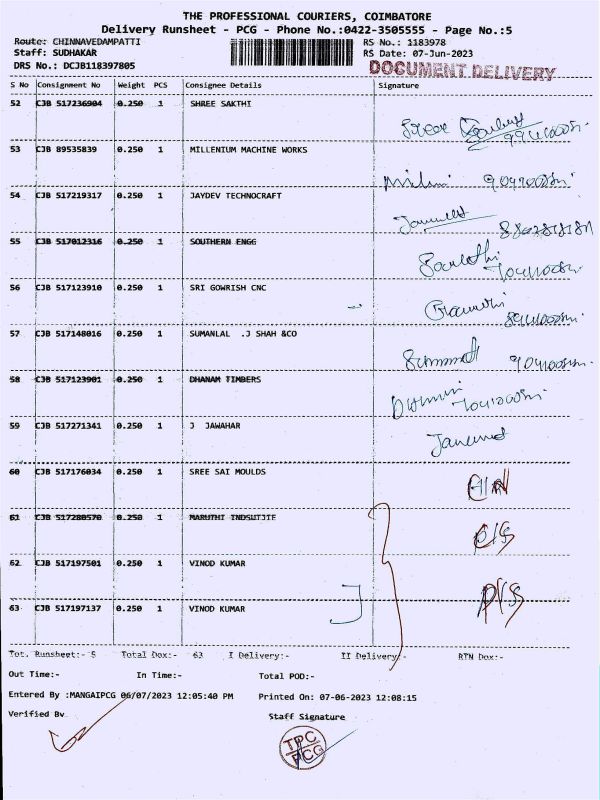 THE PROFESSIONAL COURIERS, COIMBATORE
Delivery Runsheet - PCG - Phone No.:0422-3505555 - Page No.:5
Route: CHINNAVEDAMPATTI RS No.: 1183978
Staff: SUDHAKAR RS Date: 07-Jun-2023
DRS No.: DCJB118397805 DOCUMENT DELIVERY
S No Consignment No Weight PCS Consignee Details Signature
52 CJB 517236904 0.250 1 SHREE SAKTHI
53 CJB 89535839 0.250 1 MILLENIUM MACHINE WORKS
54 CJB 517219317 0.250 1 JAYDEV TECHNOCRAFT
55 CJB 517012316 0.250 1 SOUTHERN ENGG
56 CJB 517123910 0.250 1 SRI GOWRISH CNC
57 CJB 517148016 0.250 1 SUMANLAL .J SHAH &CO
58 CJB 517123901 0.250 1 DHANAM TIMBERS
59 CJB 517271341 0.250 1 J JAWAHAR
60 CJB 517176034 0.250 1 SREE SAI MOULDS
61 CJB 517280570 0.250 1 MARUTHI INDSUTJIE
62 CJB 517197501 0.250 1 VINOD KUMAR
63 CJB 517197137 0.250 1 VINOD KUMAR
Tot. Runsheet:- 5 Total Dox:- 63 I Delivery:- II Delivery:- RTN Dox:-
Out Time:- In Time:- Total POD:-
Entered By :MANGAIPCG 06/07/2023 12:05:40 PM Printed On: 07-06-2023 12:08:15
Verified By Staff Signature
TPC
PCG